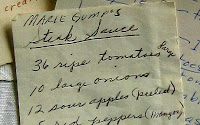 MARIE GUMP'S
Steak Sauce
36 ripe tomatoes large
10 large onions
12 sour apples (peeled)
red peppers (mangos)